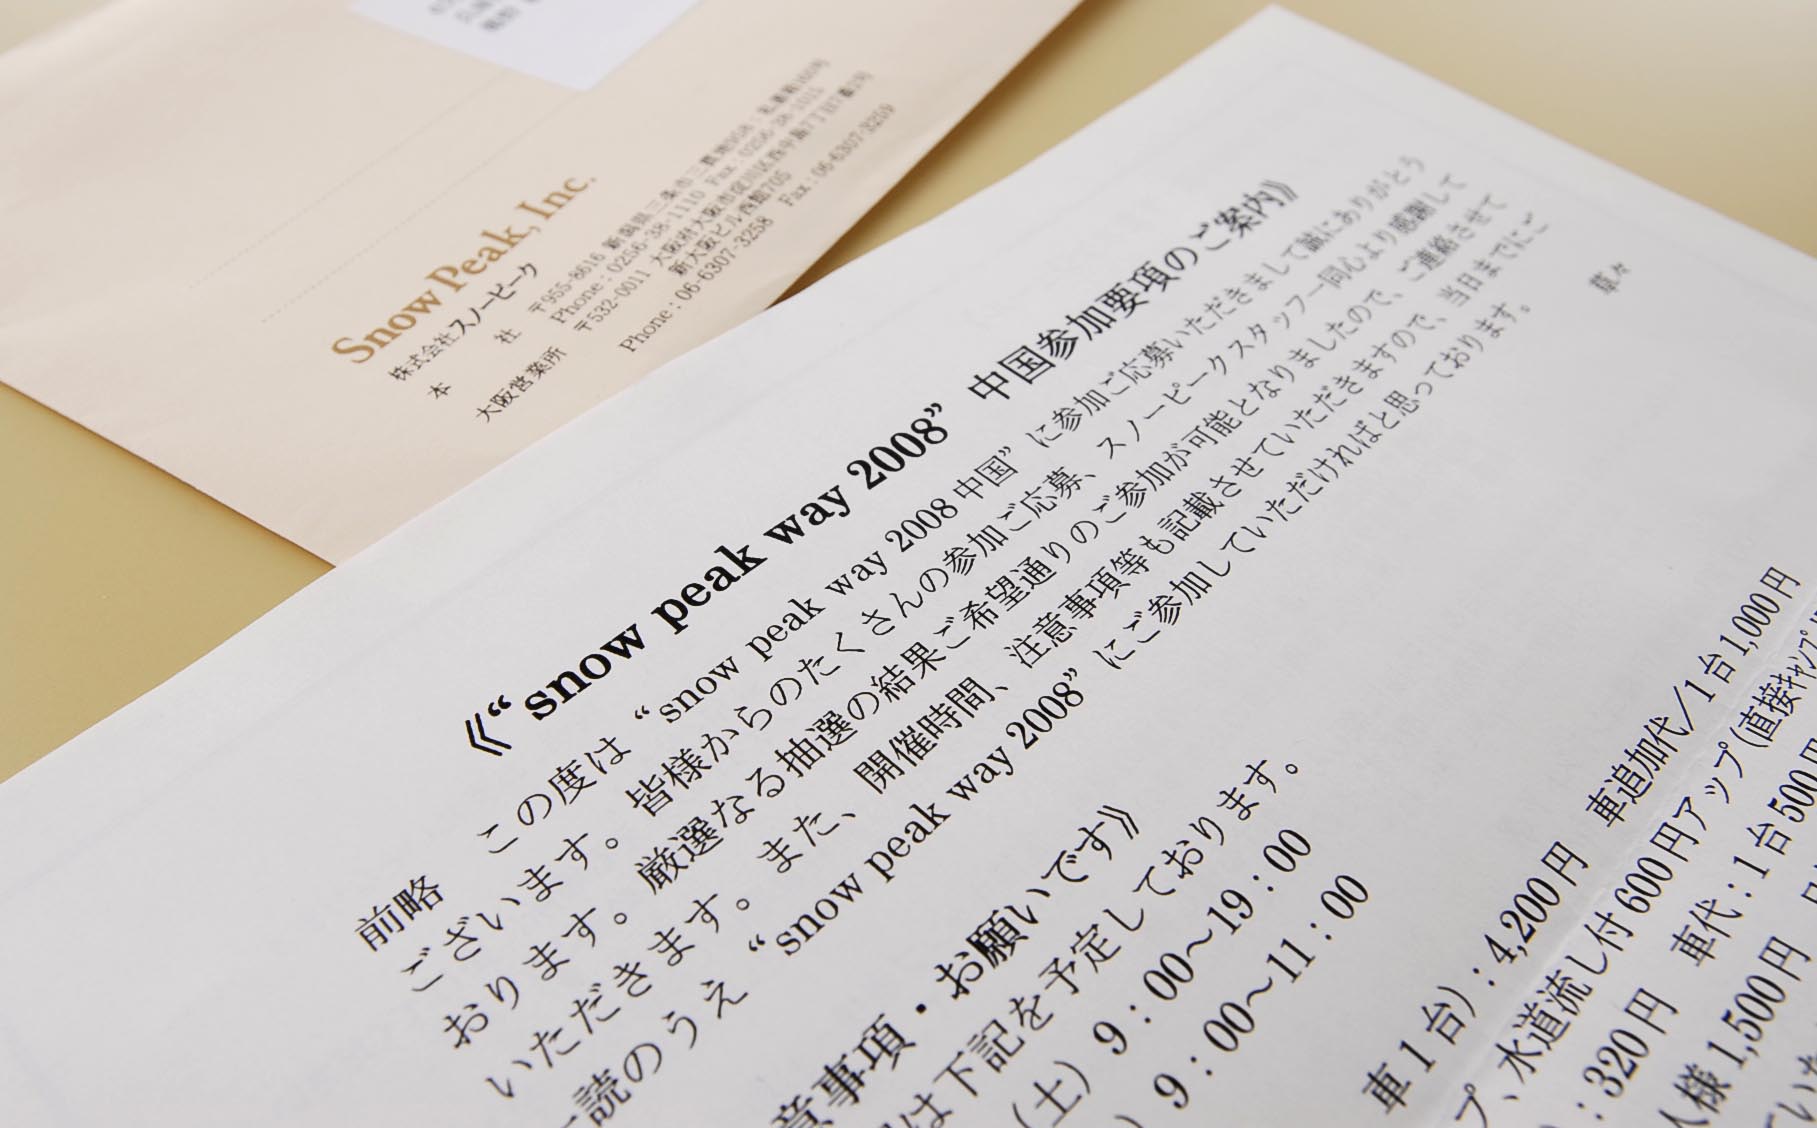 Snow Peak, Inc.
株式会社スノーピーク
本 社 〒955-8616 新潟県三条市三貫地958
Phone : 0256-38-1110 Fax : 0256-38-
大阪営業所 〒532-0011 大阪府大阪市淀川区西中島7丁目
新大阪ビル西館705
Phone : 06-6307-3258 Fax : 06-6307-3259
《“snow peak way 2008” 中国参加要項のご案内》
前略 この度は “snow peak way 2008 中国” に参加ご応募いただきまして誠にありがとう
ございます。皆様からのたくさんの参加ご応募、スノーピークスタッフ一同心より感謝して
おります。厳選なる抽選の結果ご希望通りのご参加が可能となりましたので、ご連絡させて
いただきます。また、開催時間、注意事項等も記載させていただきますので、当日までにご
一読のうえ “snow peak way 2008” にご参加していただければと思っております。
草々
意事項・お願いです》
は下記を予定しております。
(土) 9：00～19：00
) 9：00～11：00
車1台)：4,200円 車追加代／1台1,000円
プ、水道流し付600円アップ(直接キャンプ
：320円 車代：1台500円
人様1,500円